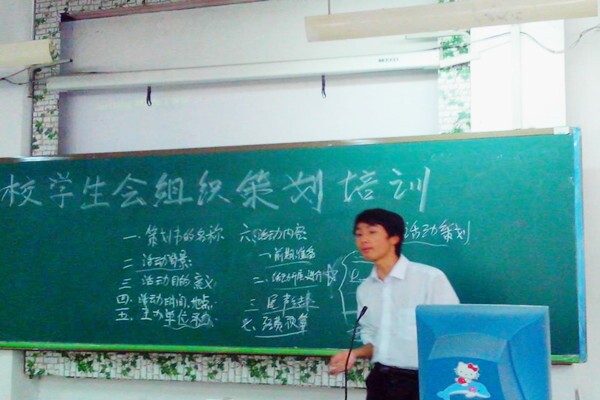 校学生会组织策划培训
一、策划书的名称
二、活动背景
三、活动目的意义
四、活动时间、地点
五、主办单位
六、活动内容
前期准备
三、尾声结束
七、经费预算
活动策划